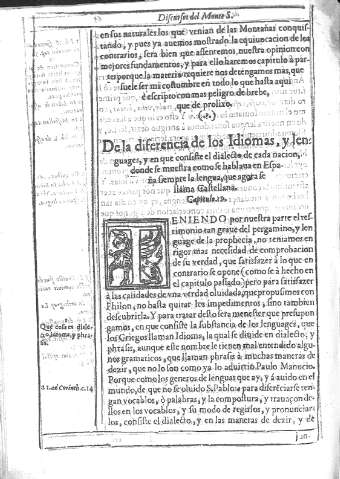 Discursos del Monte S.
en sus naturales los que venian de las Montañas conquis-
tando, y pues ya auemos mostrado la equiuocacion de los
contrarios, sera bien que assentemos nuestra opinion con
mejores fundamentos, y para ello haremos capitulo à par-
te, porque la materia requiere nos detengamos mas, que
suele ser mi costumbre en todo lo que hasta aqui
è escripto con mas peligro de brebe,
que de prolixo.
(.?.)
De la diferencia de los Idiomas, y len-
guages, y en que consiste el dialecto de cada nacion,
donde se muestra como se hablaua en Espa-
ña siempre la lengua, que agora se
llama Castellana.
Capitulo.12.
TENIENDO por nuestra parte el tes-
timonio tan graue del pergamino, y len-
guage de la prophecia, no teniamos en
rigor mas necesidad de comprobacion
de su verdad, que satisfazer à lo que en
contrario se opone (como se à hecho en
el capitulo passado) pero para satisfazer
à las calidades de vna verdad oluidada, que propusimos con
Philon, no hasta quitar los impedimentos, sino tambien
descubrirla. Y para tratar desto sera menester que presupon
gamos, en que consiste la substancia de los lenguages, que
los Griegos llaman Idioma, la qual se diuide en dialecto, y
phrasis, aunque este nombre le tienen mal entendido algu-
nos gramaticos, que llaman phrasis à muchas maneras de
dezir, que no lo son como ya lo aduirtio Paulo Manucio.
Porque como los generos de lenguas que ay, y à auido en el
mundo, de que no se oluidò S. Pablo, para diferenciarse ten-
gan vocablos, ò palabras, y la compostura, y trauaçon de-
llos en los vocablos, y su modo de regirlos, y pronunciar
los, consiste el dialecto, y en las maneras de dezir, y de
Que cosa es diale-
cto, Idioma, y phra-
sis.
1. ad Corinth. c. 14